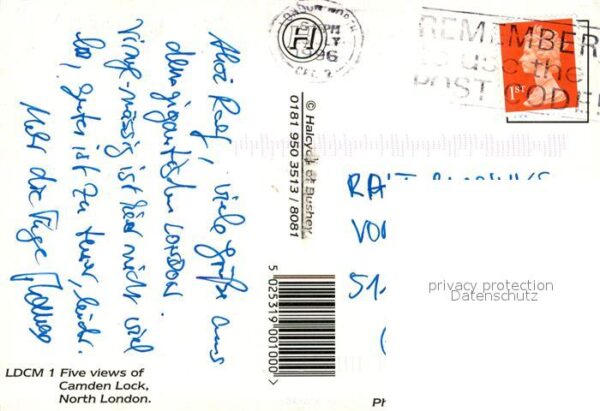 Ahoi Ralf, viele Grüße aus
dem gigantischen LONDON.
Vinyl-mässig ist hier nicht viel
los, Gutes ist zu teuer, leider.
LDCM 1 Five views of
Camden Lock,
North London.
© Halcyon of Bushey.
0181 950 3513 / 8081
5 025319 001000 >
H
PM
1996
REMEMBER
to use the
POST CODE!
1ST
privacy protection
Datenschutz